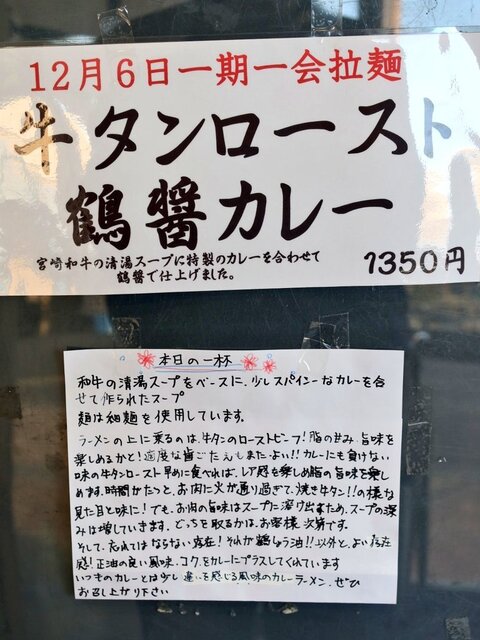 12月6日一期一会拉麺
牛タンロースト
鶴醤カレー
宮崎和牛の清湯スープに特製のカレーを合わせて
鶴醤で仕上げました。
1350円
本日の一杯
和牛の清湯スープをベースに、少しスパイシーなカレーを合
せて作られたスープ
麺は細麺を使用しています。
ラーメンの上に乗るのは、牛タンのローストビーフ!脂の甘み、旨味を
楽しめるかと!適度な歯ごたえもまたよい!!カレーにも負けない
味の牛タンロースト早めに食べれば、レア感を楽しめ脂の旨味を楽し
めます。時間がたつと、お肉に火が通り過ぎて、焼き牛タン!!の様な
見た目と味に!でも、お肉の旨味はスープに溶け出すため、スープの深
みは増していきます。どっちを取るかは、お客様、次第です。
そして、忘れてはならない存在!それが鶴しょう油!!以外と、よい存在
感!正油の良い風味、コク、をカレーにプラスしてくれています
いつものカレーとは少し違いを感じる風味のカレーラーメン、ぜひ
お召し上がり下さい